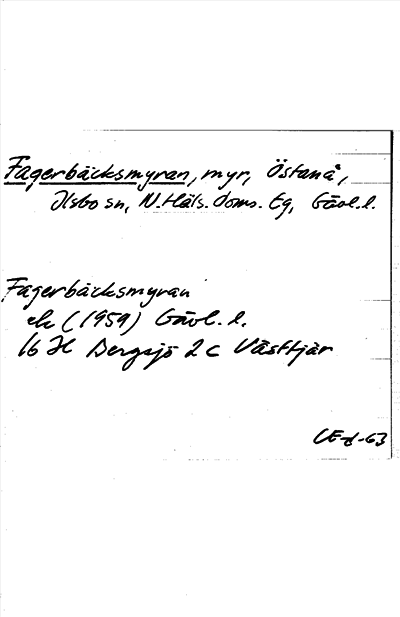 Fagerbäcksmyran, myr, Östanå,
Ilsbo sn, N. Häls. doms. Eg, Gävl. l.
Fagerbäcksmyran
ek (1959) Gävl. l.
16 H Bergsjö 2 c Västtjär